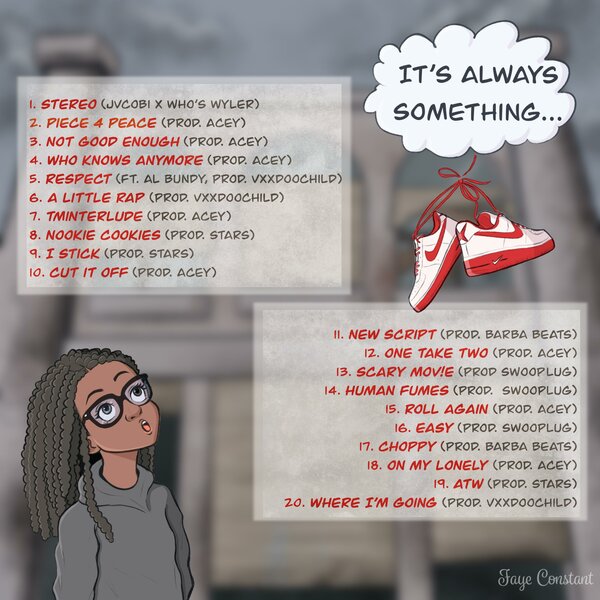 IT'S ALWAYS
SOMETHING...
1. STEREO (JVCOBI X WHO'S WYLER)
2. PIECE 4 PEACE (PROD. ACEY)
3. NOT GOOD ENOUGH (PROD. ACEY)
4. WHO KNOWS ANYMORE (PROD. ACEY)
5. RESPECT (FT. AL BUNDY, PROD. VXXDOOCHILD)
6. A LITTLE RAP (PROD. VXXDOOCHILD)
7. TMINTERLUDE (PROD. ACEY)
8. NOOKIE COOKIES (PROD. STARS)
9. I STICK (PROD. STARS)
10. CUT IT OFF (PROD. ACEY)
11. NEW SCRIPT (PROD. BARBA BEATS)
12. ONE TAKE TWO (PROD. ACEY)
13. SCARY MOV!E (PROD SWOOPLUG)
14. HUMAN FUMES (PROD. SWOOPLUG)
15. ROLL AGAIN (PROD. ACEY)
16. EASY (PROD. SWOOPLUG)
17. CHOPPY (PROD. BARBA BEATS)
18. ON MY LONELY (PROD. ACEY)
19. ATW (PROD. STARS)
20. WHERE I'M GOING (PROD. VXXDOOCHILD)
Faye Constant